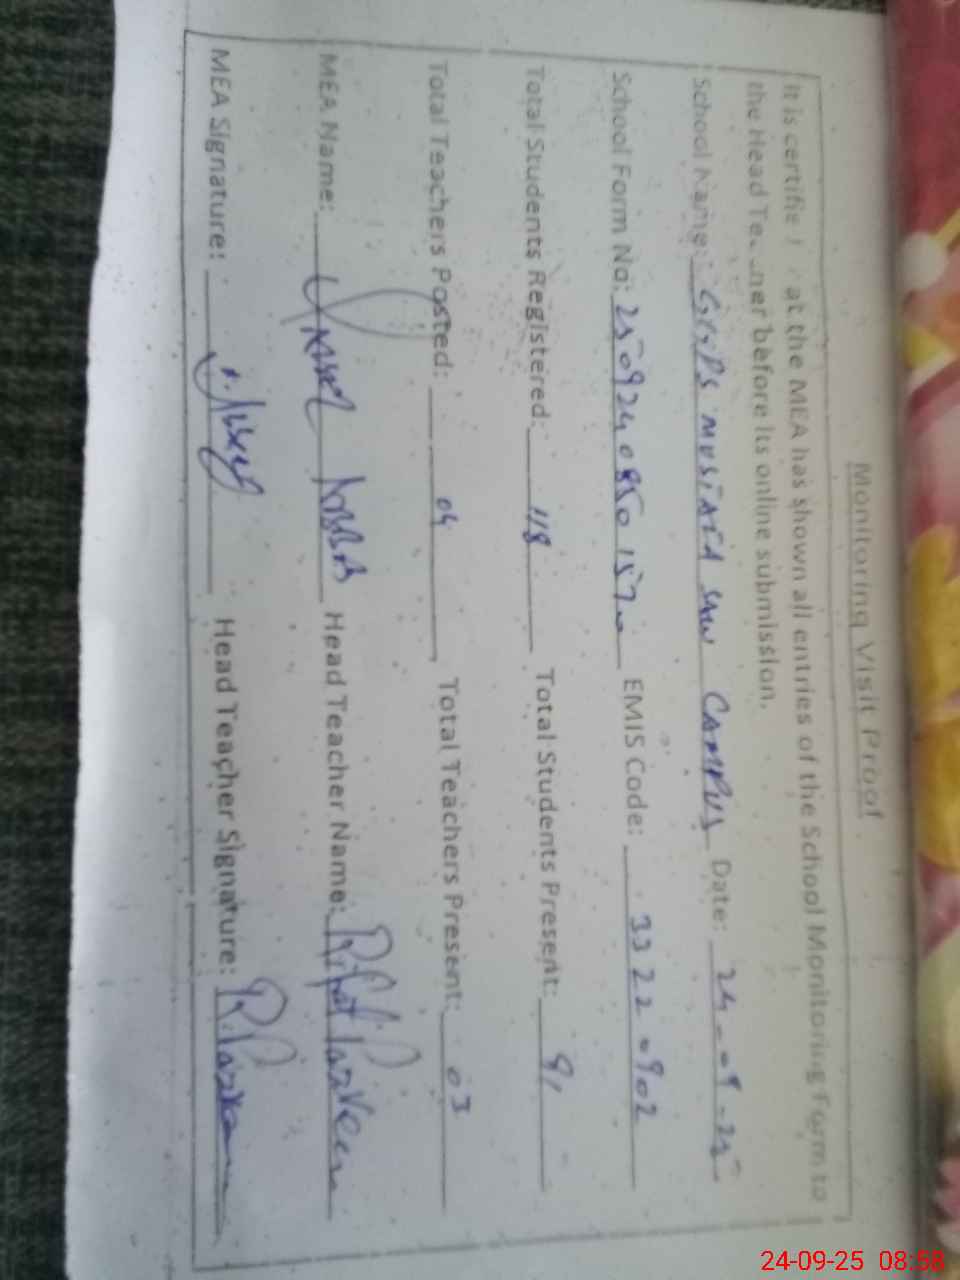 Monitoring Visit Proof
It is certified that the MEA has shown all entries of the School Monitoring Form to
the Head Teacher before its online submission.
School Name: CAMPUS Date: 24-09-25
School Form No: EMIS Code: 33220902
Total Students Registered: 118 Total Students Present: 91
Total Teachers Posted: 04 Total Teachers Present: 03
MEA Name: Head Teacher Name: Rifat Parveen
MEA Signature: Head Teacher Signature: R. Parveen
24-09-25 08:58